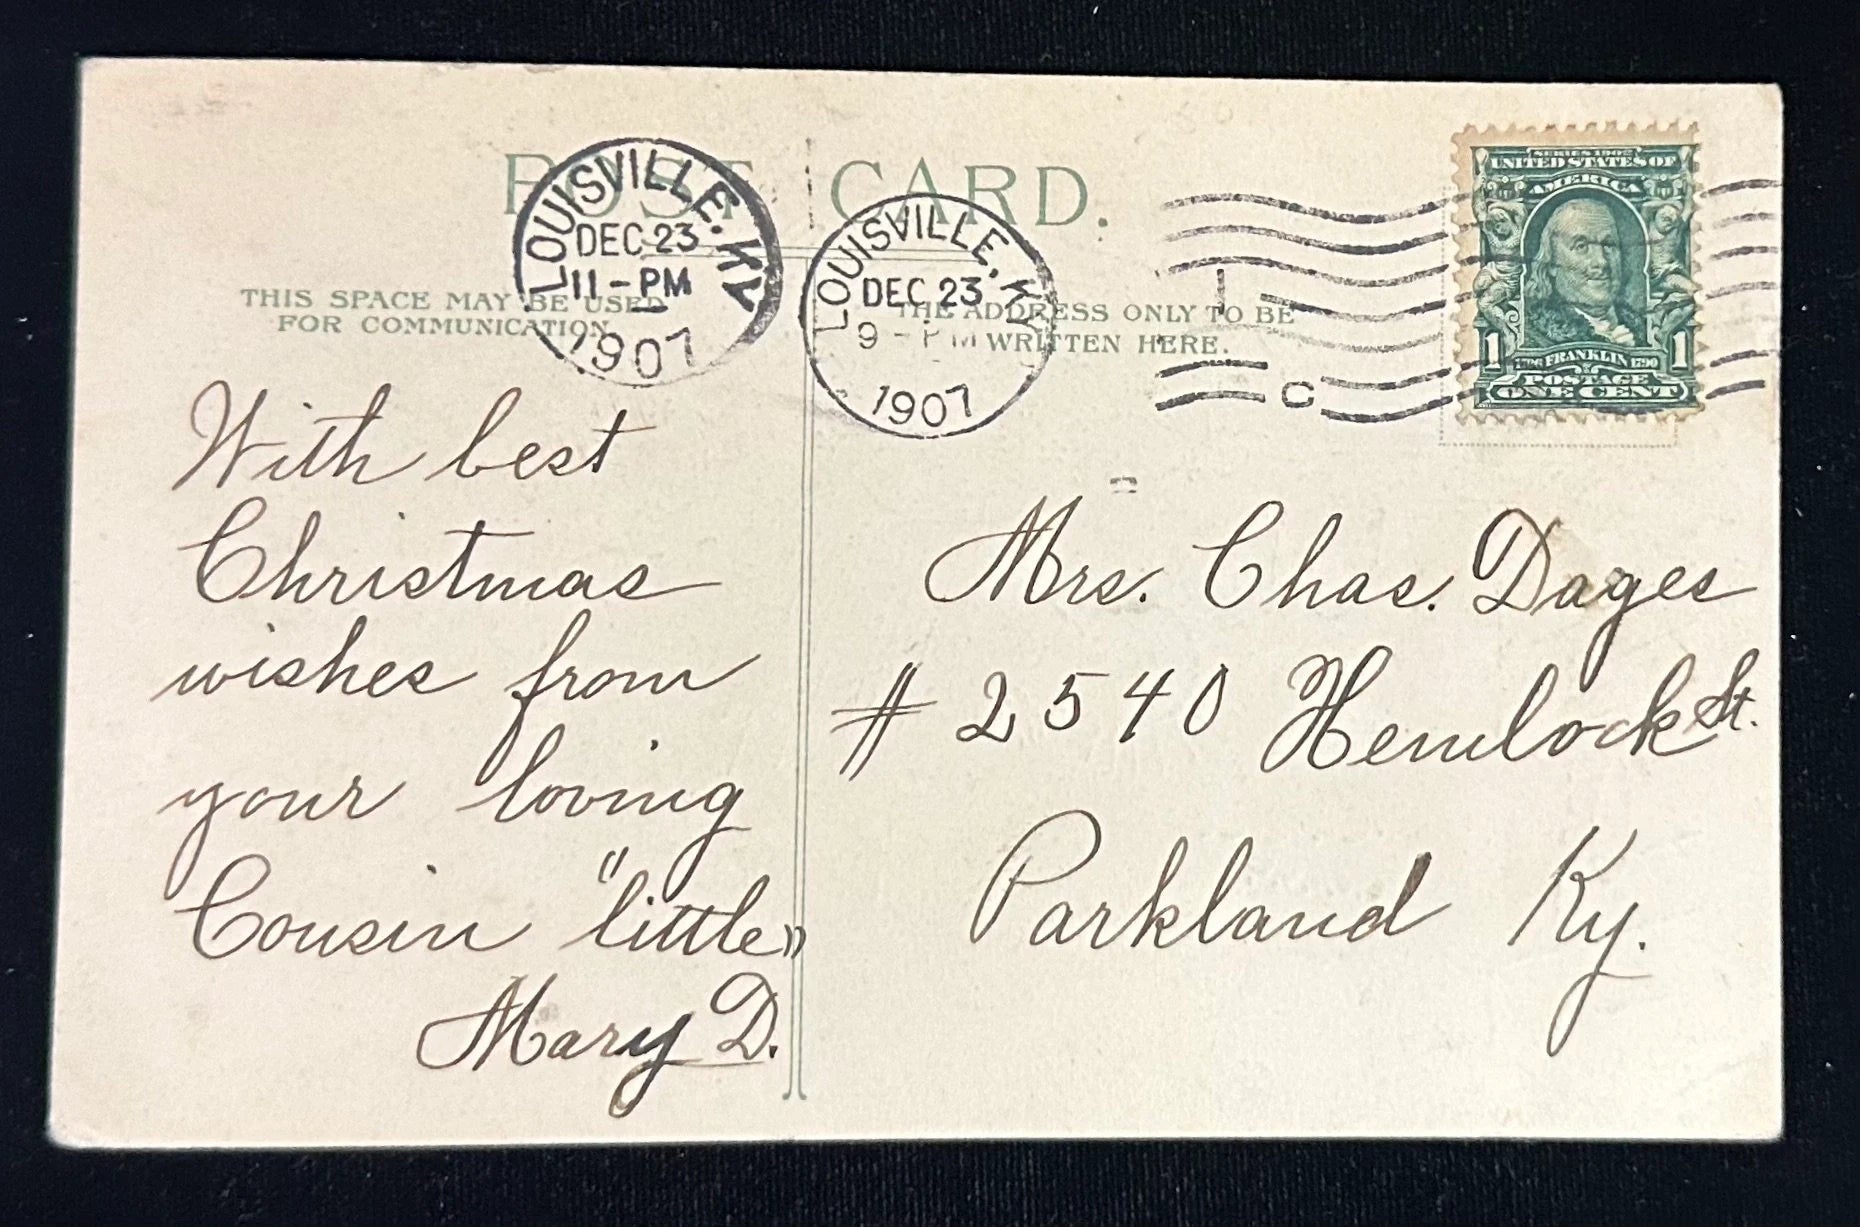 POST CARD.
LOUISVILLE. KY
DEC 23
11-PM
1907
LOUISVILLE, KY
DEC 23
9-PM
1907
C
SERIES 1902
UNITED STATES OF
AMERICA
1 1706 FRANKLIN 1790 1
POSTAGE
ONE CENT
THIS SPACE MAY BE USED
FOR COMMUNICATION
THE ADDRESS ONLY TO BE
WRITTEN HERE.
With best
Christmas
wishes from
your loving
Cousin "little"
Mary D.
Mrs. Chas. Dages
# 2540 Hemlock St.
Parkland Ky.